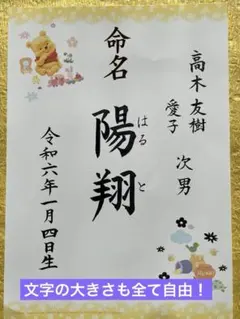 命名
高木友樹
愛子
次男
陽翔
はると
令和六年一月四日生
文字の大きさも全て自由！